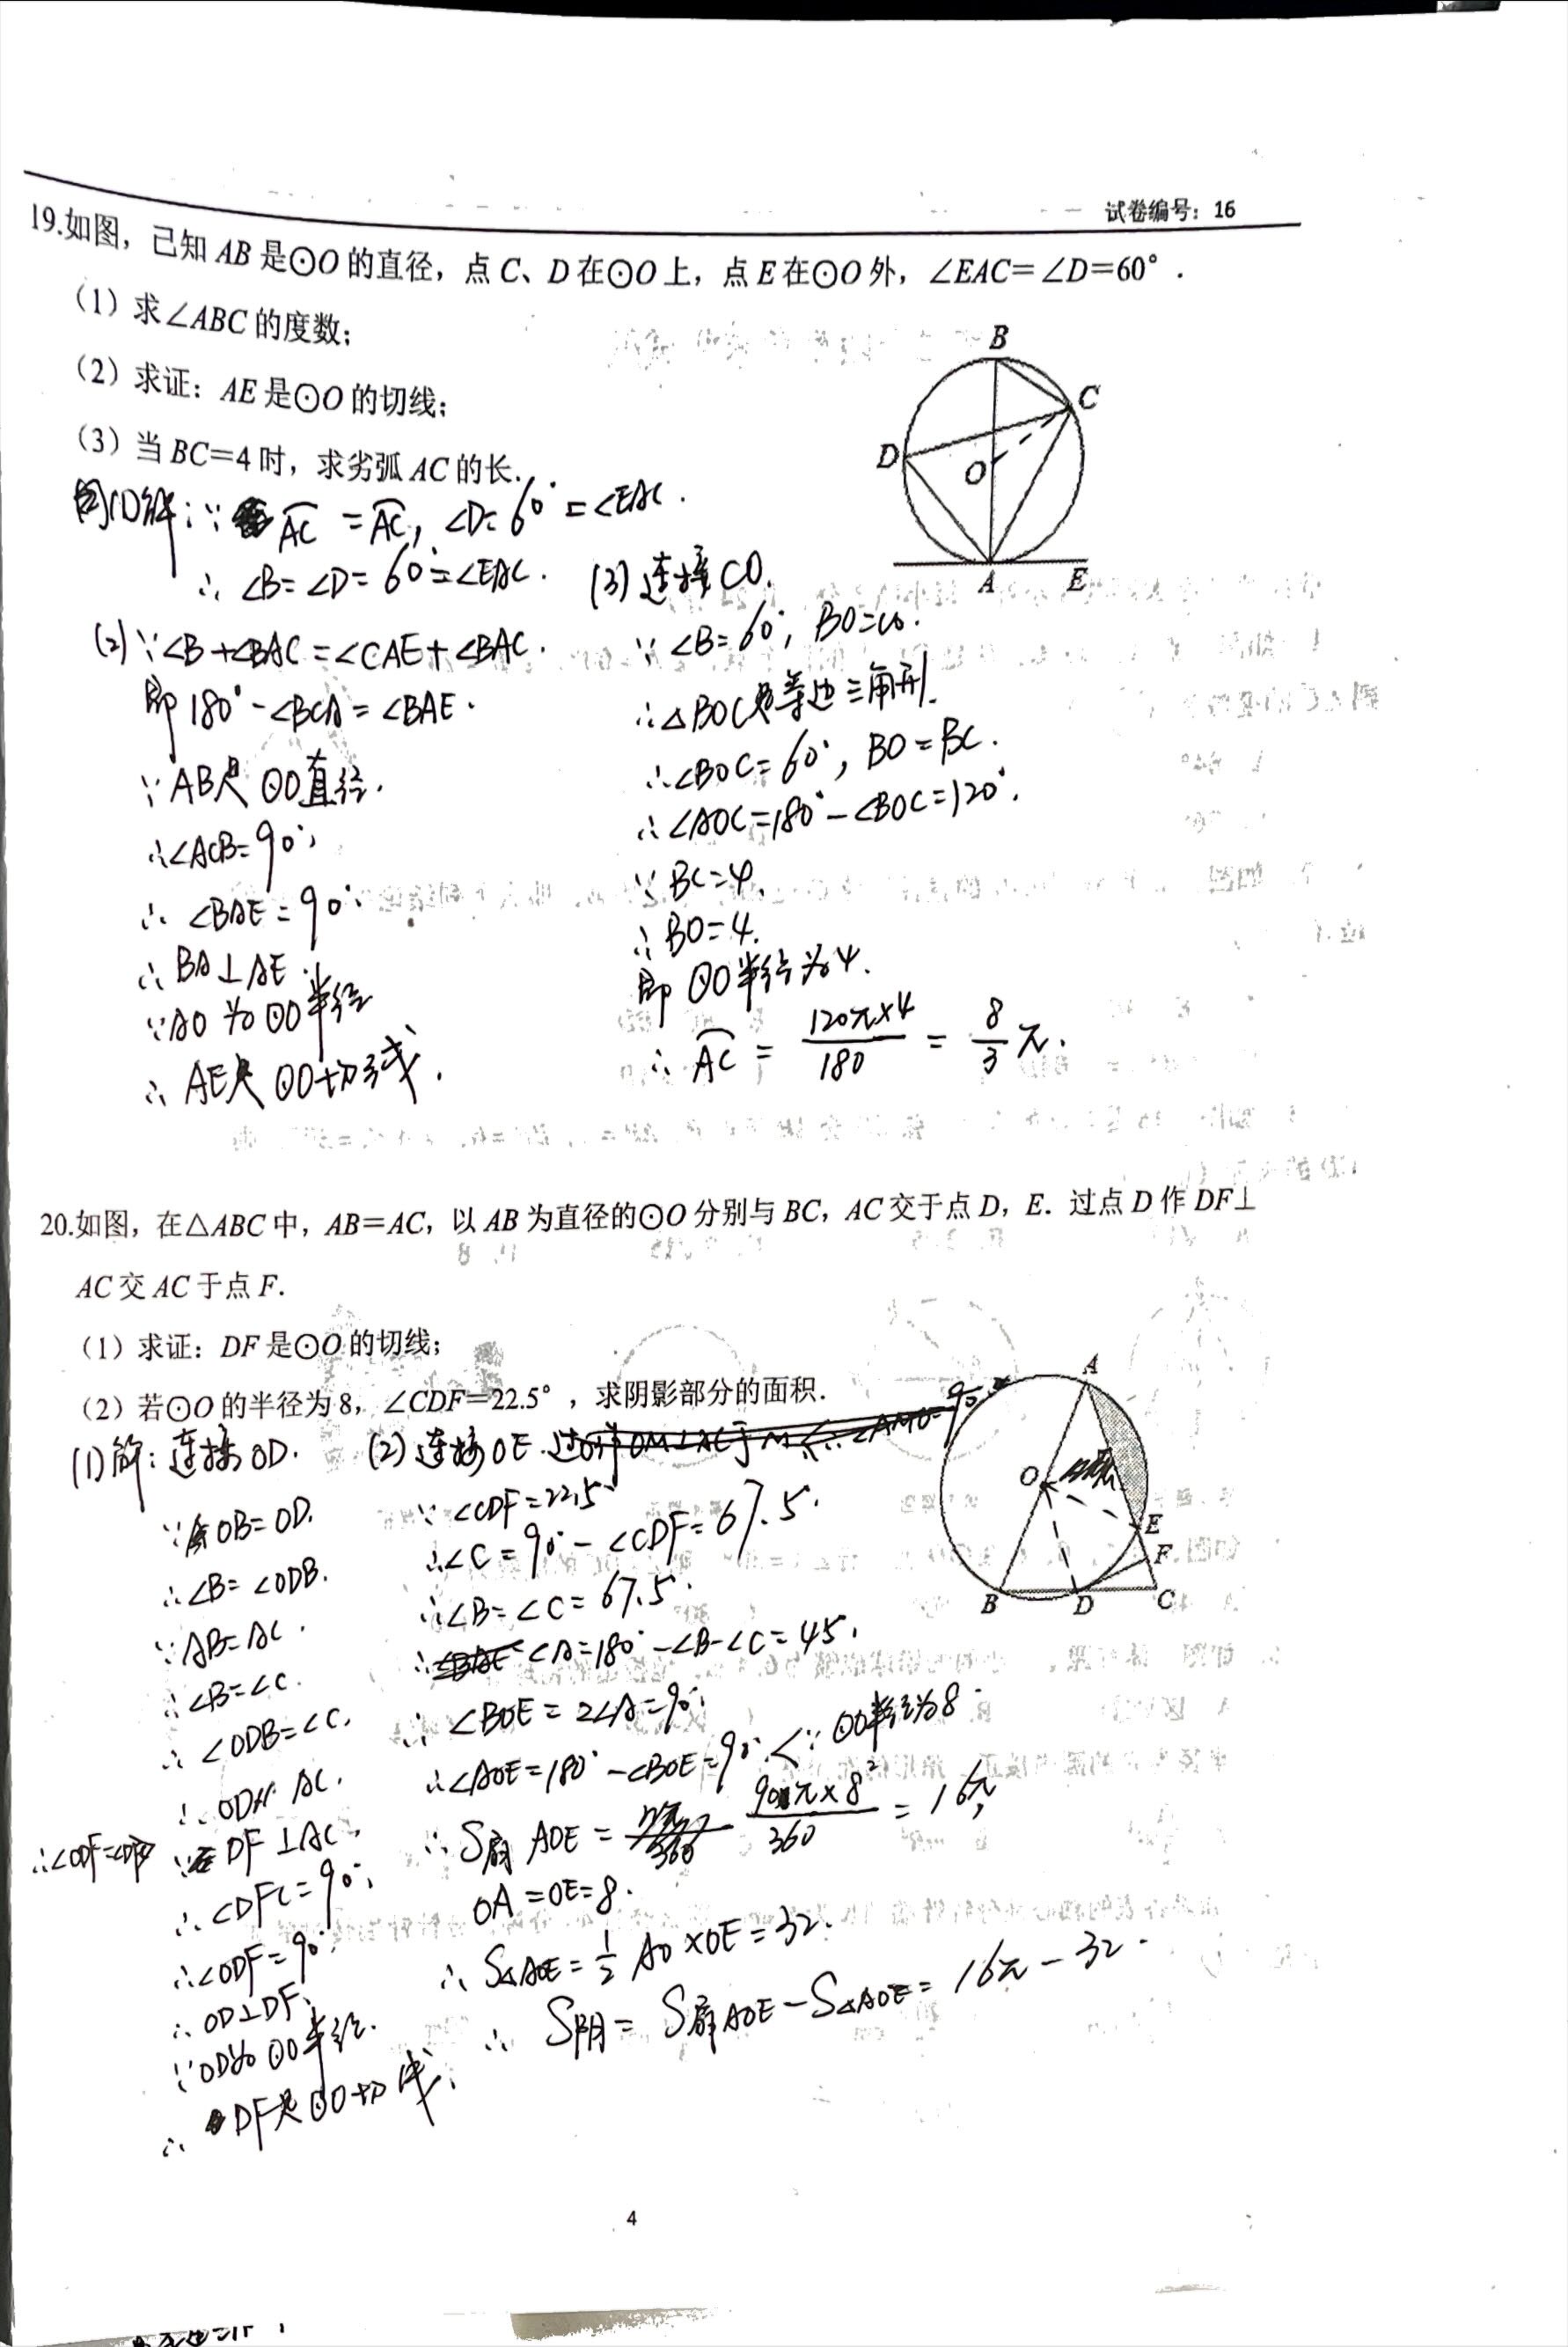 试卷编号：16
19.如图，已知 AB 是⊙O 的直径，点 C、D 在⊙O 上，点 E 在⊙O 外，∠EAC＝∠D＝60°．
（1）求∠ABC 的度数；
（2）求证：AE 是⊙O 的切线；
（3）当 BC＝4 时，求劣弧 AC 的长．
B
C
D
O
A
E
(1)解：∵ ⌒AC = ⌒AC, ∠D=60°=∠EAC.
∴ ∠B=∠D=60°=∠EAC.
(2)∵∠B+∠BAC=∠CAE+∠BAC.
即180°-∠BCA=∠BAE.
∵AB是⊙O直径.
∴∠ACB=90°,
∴ ∠BAE=90°.
∴ BA⊥AE.
∵AO为⊙O半径
∴ AE是⊙O切线.
(3)连接CO.
∵ ∠B=60°, BO=CO.
∴△BOC是等边三角形.
∴∠BOC=60°, BO=BC.
∴∠AOC=180°-∠BOC=120°.
∵ BC=4,
∴ BO=4.
即 ⊙O半径为4.
∴ ⌒AC = 120π×4/180 = 8/3 π.
20.如图，在△ABC 中，AB＝AC，以 AB 为直径的⊙O 分别与 BC，AC 交于点 D，E．过点 D 作 DF⊥
AC 交 AC 于点 F．
（1）求证：DF 是⊙O 的切线；
（2）若⊙O 的半径为 8，∠CDF＝22.5°，求阴影部分的面积．
A
O
E
F
B
D
C
(1)解：连接OD.
∵OB=OD.
∴∠B=∠ODB.
∵AB=AC.
∴∠B=∠C.
∴∠ODB=∠C.
∴OD∥AC.
∵DF⊥AC.
∴∠DFC=90°,
∴∠ODF=90°
∴OD⊥DF.
∵OD为⊙O半径.
∴DF是⊙O切线.
(2)连接OE.
∵∠CDF=22.5°
∴∠C=90°-∠CDF=67.5°.
∴∠B=∠C=67.5°.
∴∠A=180°-∠B-∠C=45°.
∴∠BOE=2∠A=90°,
∴∠AOE=180°-∠BOE=90°.<∵⊙O半径为8.
∴S扇AOE = 90π×8²/360 = 16π,
OA=OE=8.
∴S△AOE=1/2 AO×OE=32.
∴ S阴=S扇AOE-S△AOE=16π-32.
4